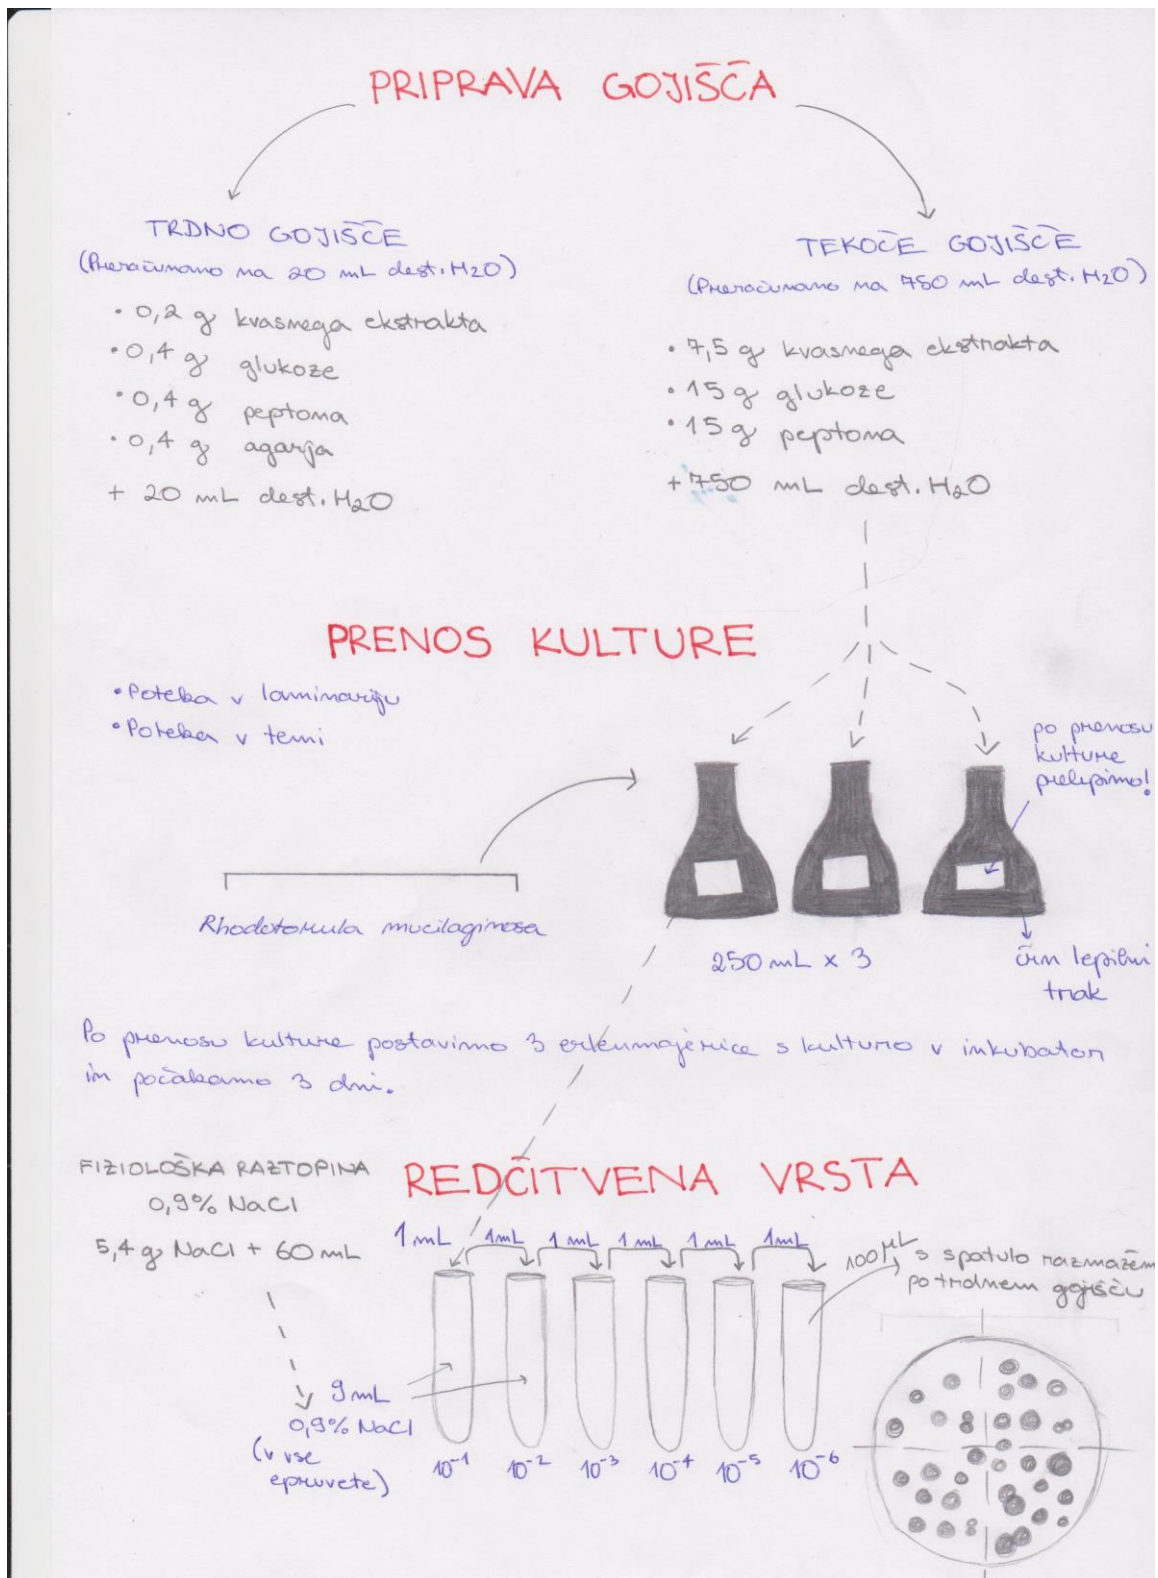 PRIPRAVA GOJIŠČA
TRDNO GOJIŠČE
(Preračunano na 20 mL dest. H2O)
• 0,2 g kvasnega ekstrakta
• 0,4 g glukoze
• 0,4 g peptona
• 0,4 g agarja
+ 20 mL dest. H2O
TEKOČE GOJIŠČE
(Preračunano na 750 mL dest. H2O)
• 7,5 g kvasnega ekstrakta
• 15 g glukoze
• 15 g peptona
+ 750 mL dest. H2O
PRENOS KULTURE
• Poteka v laminariju
• Poteka v temi
po prenosu
kulture
prelepimo!
Rhodotorula mucilaginosa
250 mL x 3
črn lepilni
trak
Po prenosu kulture postavimo 3 erlenmajerice s kulturo v inkubator
in počakamo 3 dni.
FIZIOLOŠKA RAZTOPINA
0,9% NaCl
5,4 g NaCl + 60 mL
REDČITVENA VRSTA
1 mL 1 mL 1 mL 1 mL 1 mL 1 mL
100 µL s spatulo razmažem
po trdnem gojišču
9 mL
0,9% NaCl
(v vse
epruvete)
10⁻¹ 10⁻² 10⁻³ 10⁻⁴ 10⁻⁵ 10⁻⁶